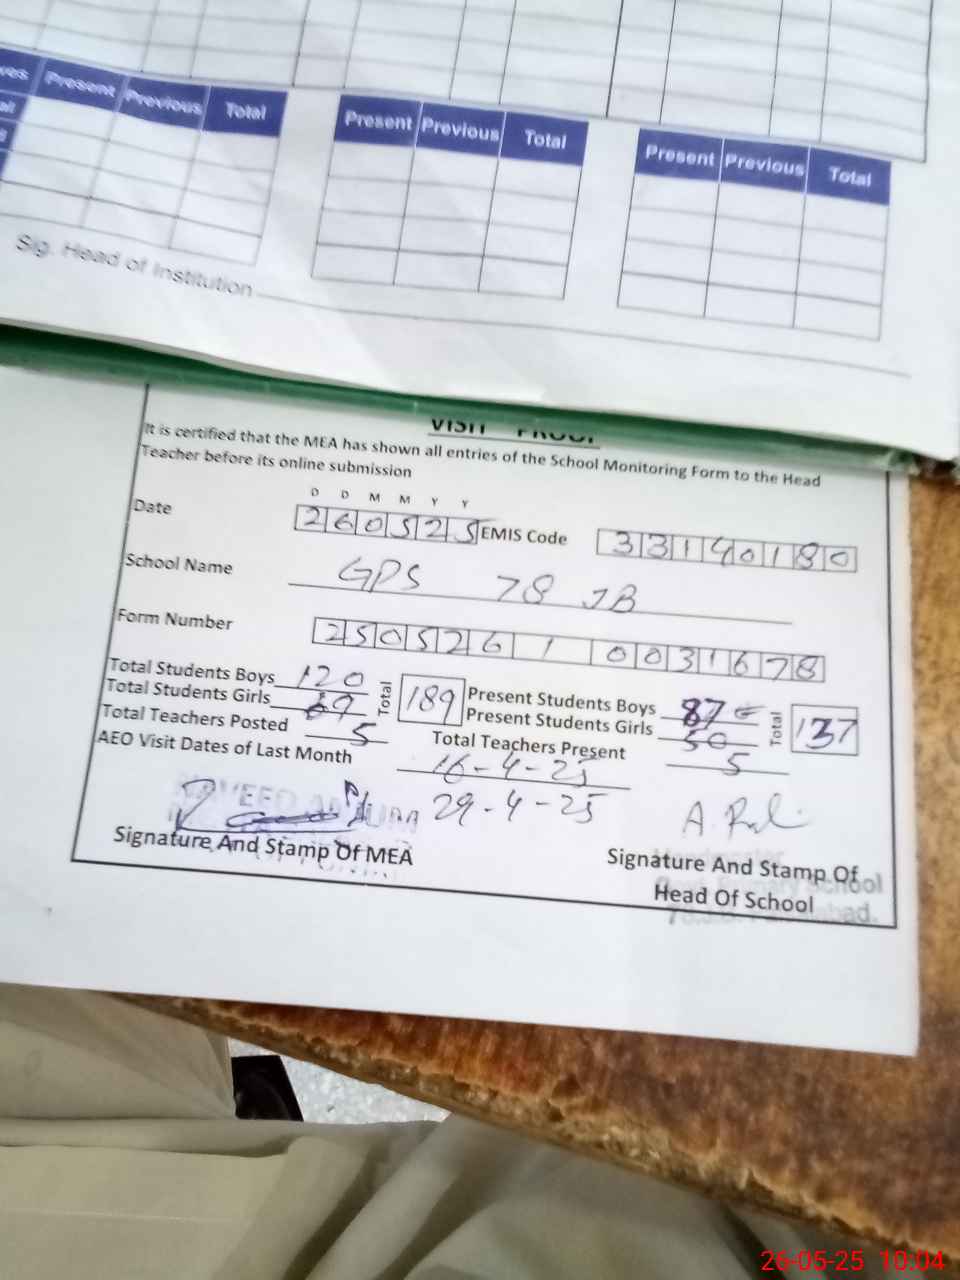 Present Previous Total
Present Previous Total
Present Previous Total
Sig. Head of Institution
VISIT PROOF
It is certified that the MEA has shown all entries of the School Monitoring Form to the Head
Teacher before its online submission
D D M M Y Y
Date 260525 EMIS Code 33140180
School Name GPS 78 JB
Form Number 250526 1 0031678
Total Students Boys 120 Total 189 Present Students Boys 87 Total 137
Total Students Girls 69 Present Students Girls 50
Total Teachers Posted 5 Total Teachers Present 5
AEO Visit Dates of Last Month 16-4-25
29-4-25
Signature And Stamp Of MEA
Signature And Stamp Of
Head Of School
26-05-25 10:04